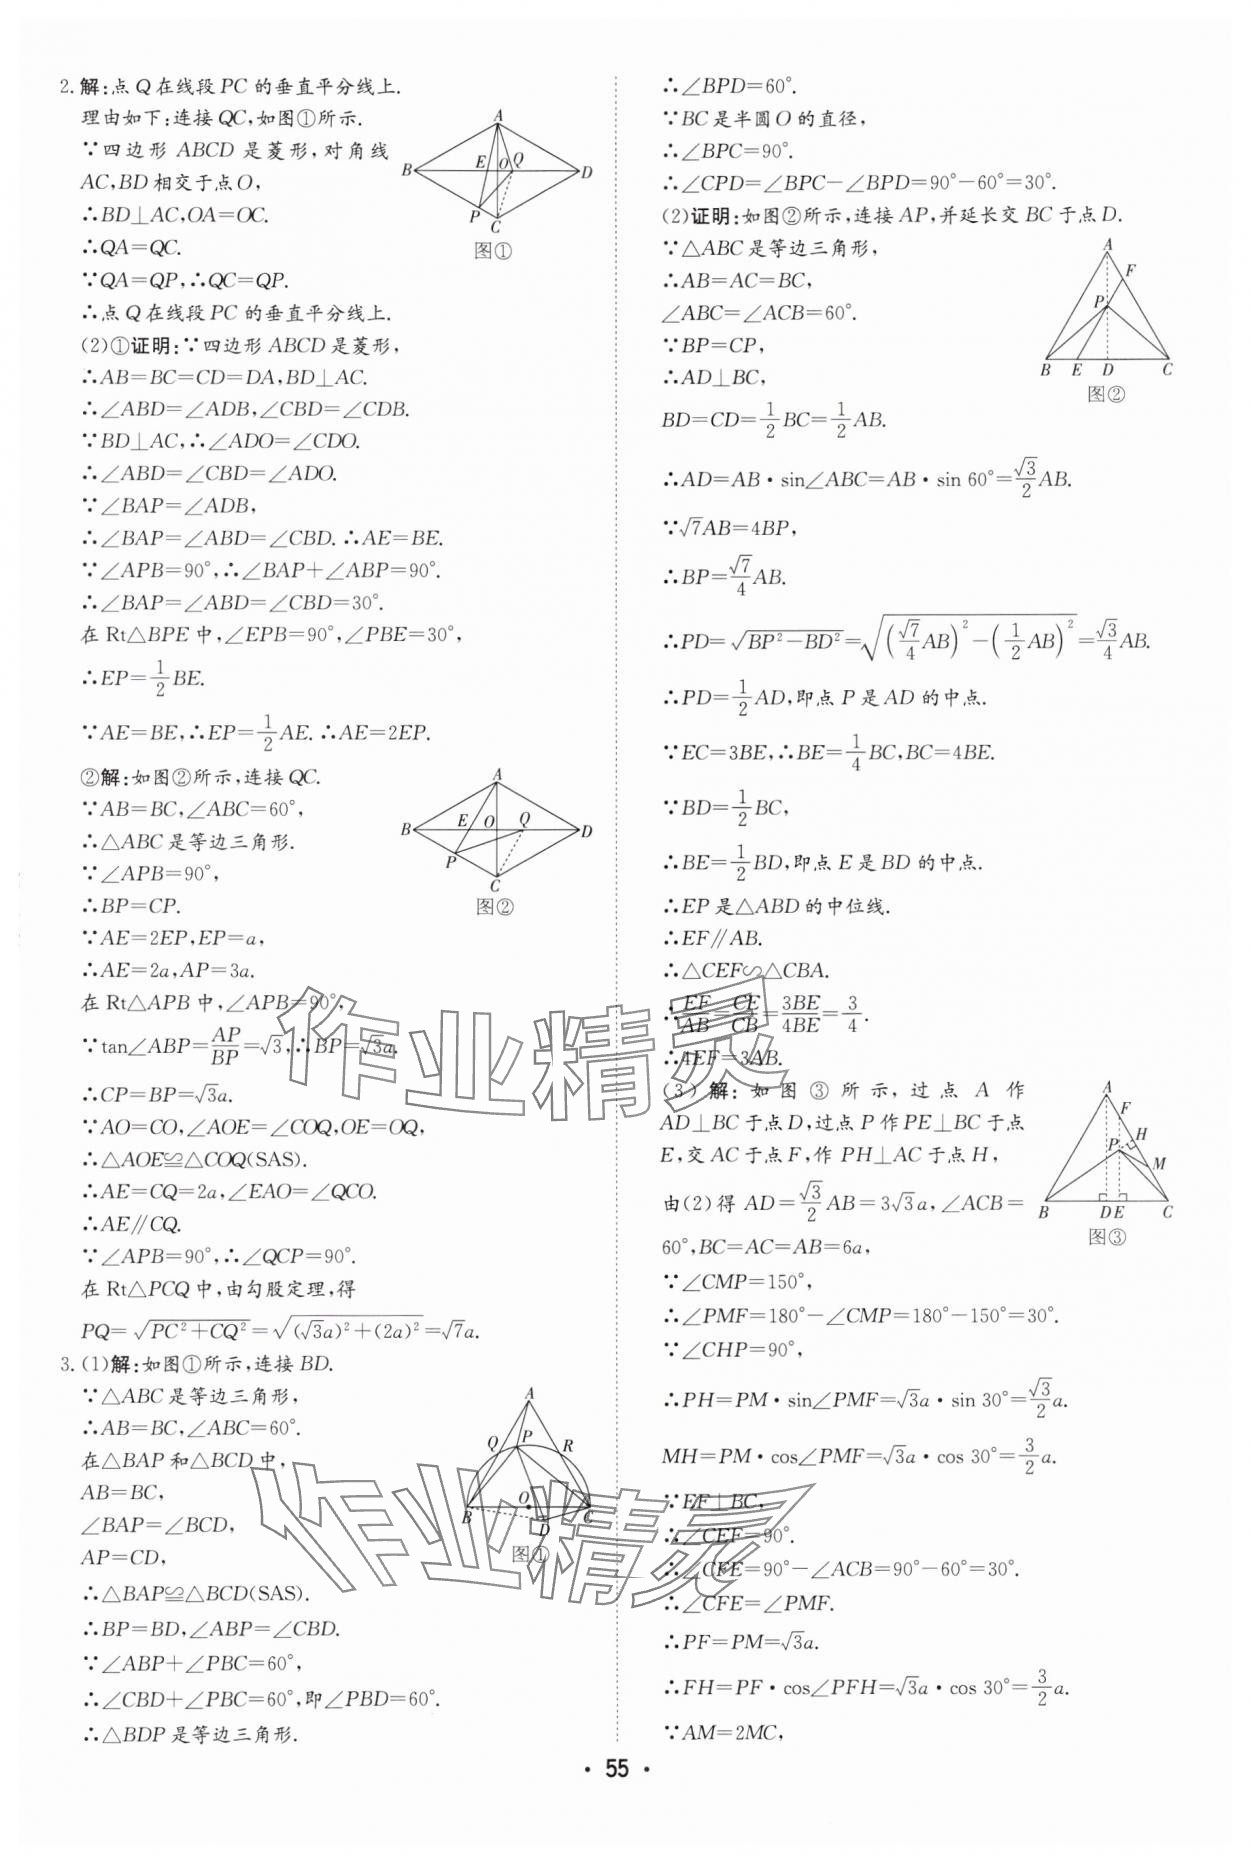 2. 解:点Q在线段PC的垂直平分线上.
理由如下:连接QC,如图①所示.
∵四边形ABCD是菱形,对角线
AC,BD相交于点O,
∴BD⊥AC,OA=OC.
∴QA=QC.
∵QA=QP,∴QC=QP.
∴点Q在线段PC的垂直平分线上.
A
B
E
O
Q
D
P
C
图①
(2)①证明:∵四边形ABCD是菱形,
∴AB=BC=CD=DA,BD⊥AC.
∴∠ABD=∠ADB,∠CBD=∠CDB.
∵BD⊥AC,∴∠ADO=∠CDO.
∴∠ABD=∠CBD=∠ADO.
∵∠BAP=∠ADB,
∴∠BAP=∠ABD=∠CBD.∴AE=BE.
∵∠APB=90°,∴∠BAP+∠ABP=90°.
∴∠BAP=∠ABD=∠CBD=30°.
在Rt△BPE中,∠EPB=90°,∠PBE=30°,
∴EP=1/2BE.
∵AE=BE,∴EP=1/2AE.∴AE=2EP.
②解:如图②所示,连接QC.
∵AB=BC,∠ABC=60°,
∴△ABC是等边三角形.
∵∠APB=90°,
∴BP=CP.
∵AE=2EP,EP=a,
∴AE=2a,AP=3a.
A
B
E
O
Q
D
P
C
图②
在Rt△APB中,∠APB=90°,
∵tan∠ABP=AP/BP=√3,∴BP=√3a.
∴CP=BP=√3a.
∵AO=CO,∠AOE=∠COQ,OE=OQ,
∴△AOE≌△COQ(SAS).
∴AE=CQ=2a,∠EAO=∠QCO.
∴AE∥CQ.
∵∠APB=90°,∴∠QCP=90°.
在Rt△PCQ中,由勾股定理,得
PQ=√(PC²+CQ²)=√((√3a)²+(2a)²)=√7a.
3. (1)解:如图①所示,连接BD.
∵△ABC是等边三角形,
∴AB=BC,∠ABC=60°.
在△BAP和△BCD中,
AB=BC,
∠BAP=∠BCD,
AP=CD,
∴△BAP≌△BCD(SAS).
A
Q
P
R
B
O
C
D
图①
∴BP=BD,∠ABP=∠CBD.
∵∠ABP+∠PBC=60°,
∴∠CBD+∠PBC=60°,即∠PBD=60°.
∴△BDP是等边三角形.
∴∠BPD=60°.
∵BC是半圆O的直径,
∴∠BPC=90°.
∴∠CPD=∠BPC-∠BPD=90°-60°=30°.
(2)证明:如图②所示,连接AP,并延长交BC于点D.
∵△ABC是等边三角形,
∴AB=AC=BC,
∠ABC=∠ACB=60°.
∵BP=CP,
∴AD⊥BC,
BD=CD=1/2BC=1/2AB.
A
F
P
B
E
D
C
图②
∴AD=AB·sin∠ABC=AB·sin 60°=√3/2AB.
∵√7AB=4BP,
∴BP=√7/4AB.
∴PD=√(BP²-BD²)=√((√7/4AB)²-(1/2AB)²)=√3/4AB.
∴PD=1/2AD,即点P是AD的中点.
∵EC=3BE,∴BE=1/4BC,BC=4BE.
∵BD=1/2BC,
∴BE=1/2BD,即点E是BD的中点.
∴EP是△ABD的中位线.
∴EF∥AB.
∴△CEF∽△CBA.
∴EF/AB=CE/CB=3BE/4BE=3/4.
∴4EF=3AB.
(3)解:如图③所示,过点A作
AD⊥BC于点D,过点P作PE⊥BC于点
E,交AC于点F,作PH⊥AC于点H,
由(2)得AD=√3/2AB=3√3a,∠ACB=
60°,BC=AC=AB=6a,
A
F
H
P
M
B
D
E
C
图③
∵∠CMP=150°,
∴∠PMF=180°-∠CMP=180°-150°=30°.
∵∠CHP=90°,
∴PH=PM·sin∠PMF=√3a·sin 30°=√3/2a.
MH=PM·cos∠PMF=√3a·cos 30°=3/2a.
∵EF⊥BC,
∴∠CEF=90°.
∴∠CFE=90°-∠ACB=90°-60°=30°.
∴∠CFE=∠PMF.
∴PF=PM=√3a.
∴FH=PF·cos∠PFH=√3a·cos 30°=3/2a.
∵AM=2MC,
· 55 ·
作业精灵
作业精灵